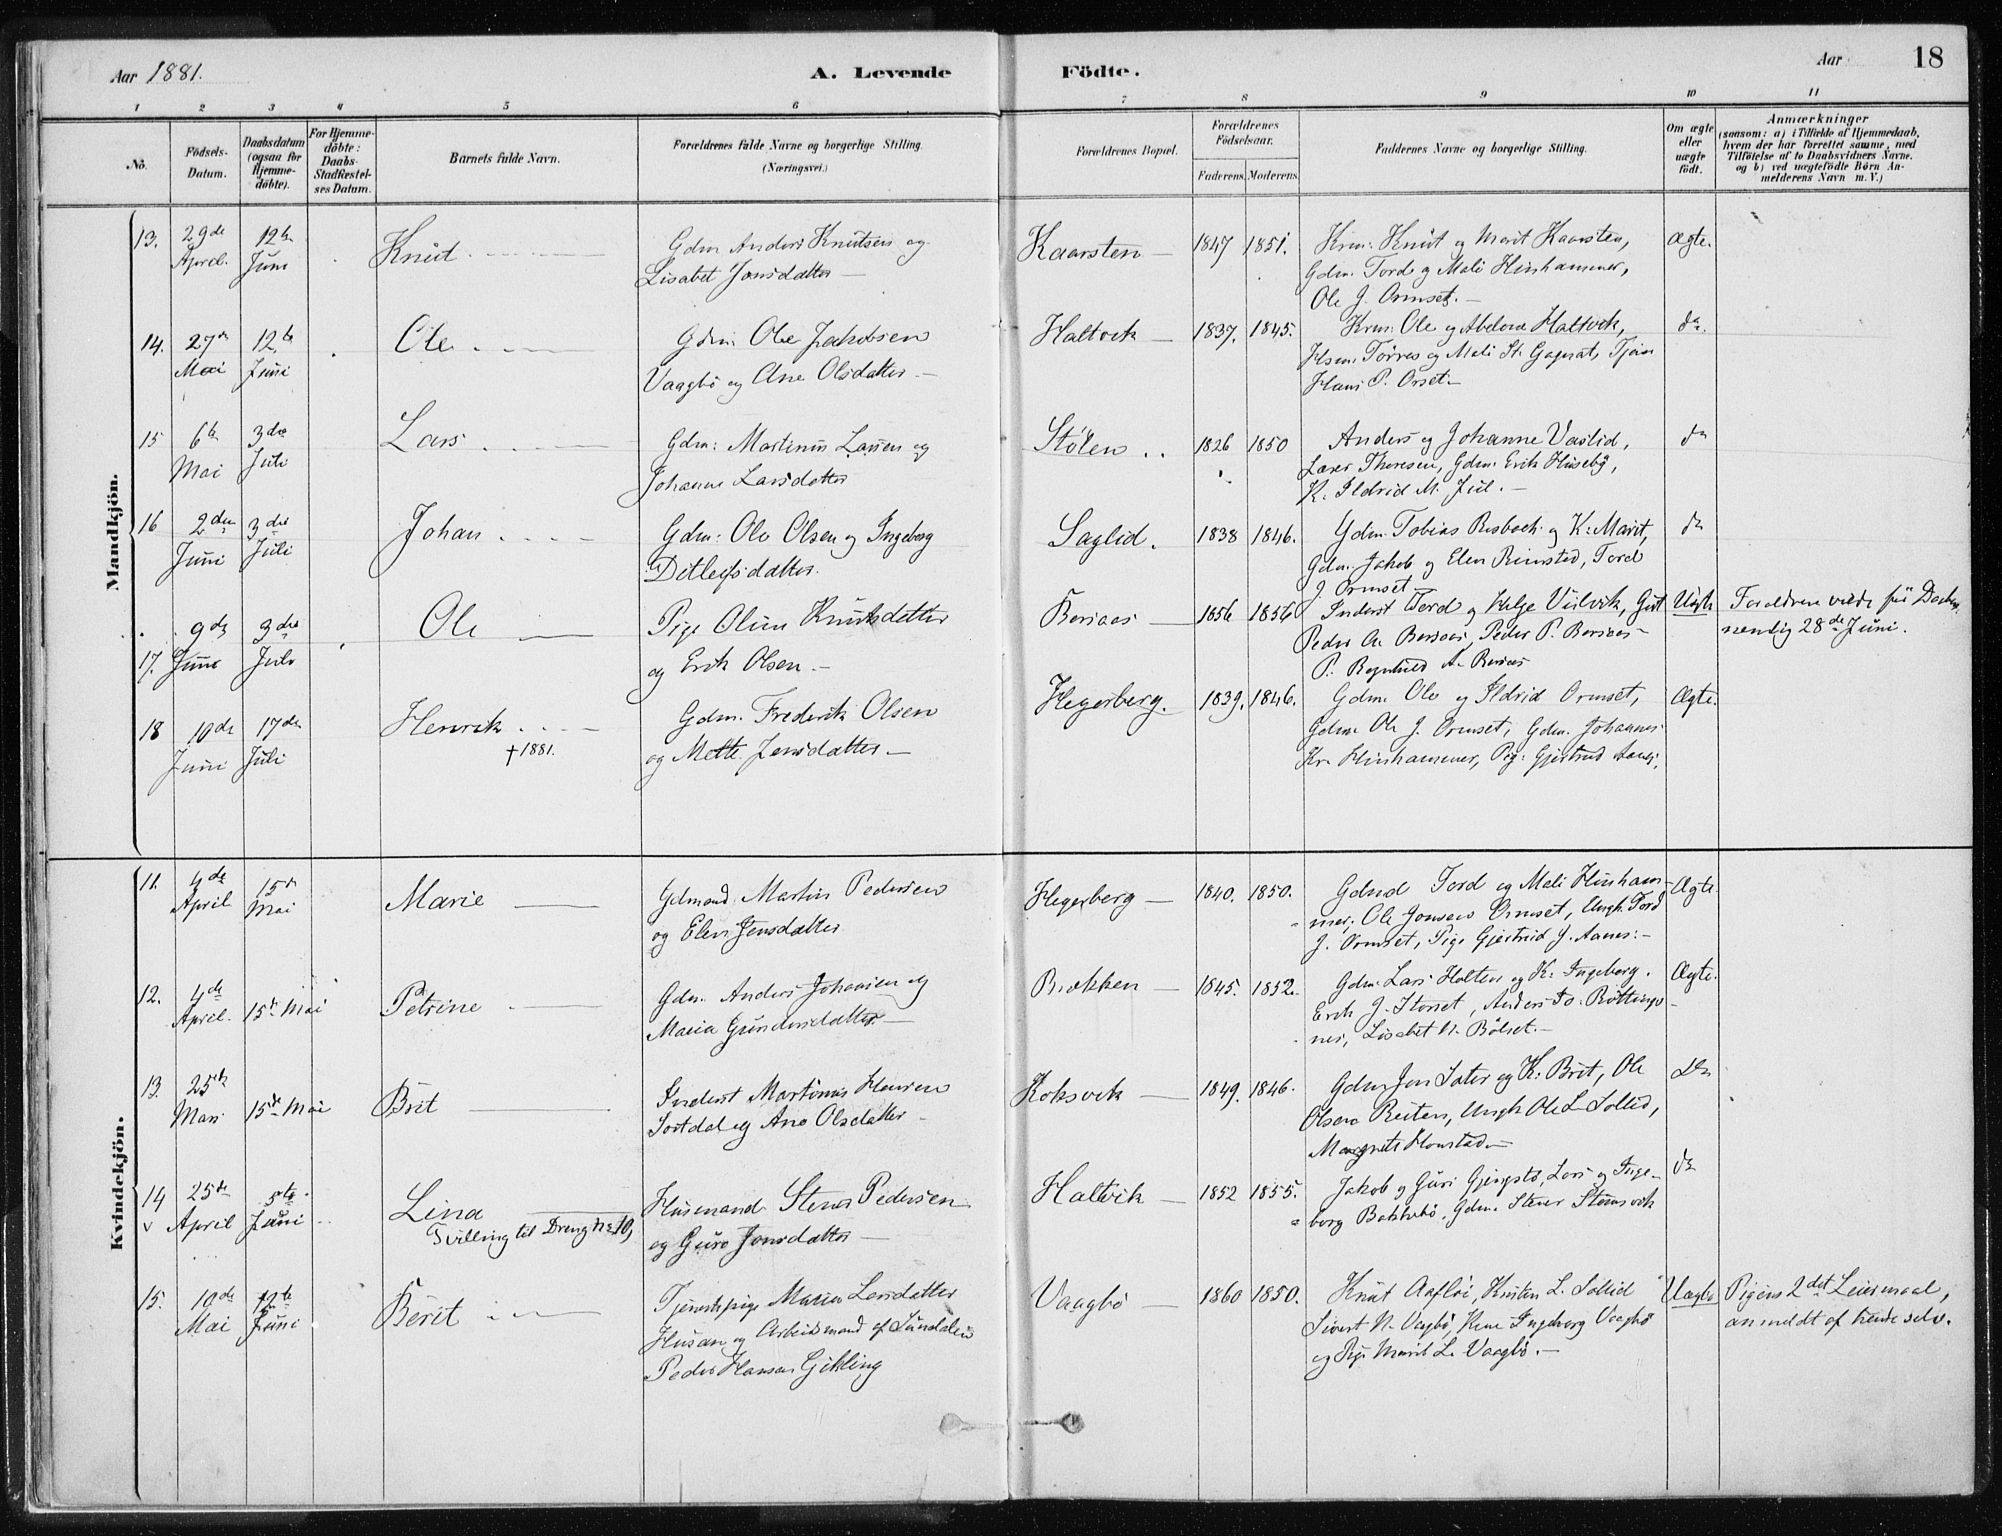 Aar 1881.
A. Levende Födte.
Aar
18
1 2 3 4 5 6 7 8 9 10 11
No.
Födsels-Datum.
Daabsdatum (ogsaa for Hjemme-döbte).
For Hjemme-döbte: Daabs-Stadfæstel-ses Datum.
Barnets fulde Navn.
Forældrenes fulde Navne og borgerlige Stilling.
(Næringsvei.)
Forældrenes Bopæl.
Forældrenes Födselsaar.
Faderens. Moderens.
Faddernes Navne og borgerlige Stilling.
Om ægte eller uægte födt.
Anmærkninger
(saasom: a) i Tilfælde af Hjemmedaab, hvem der har forrettet samme, med Tilföielse af to Daabsvidners Navne, og b) ved uægtefödte Börn An-melderens Navn m. V.)
Mandkjön.
13. 29de April. 12te Juni Knut
Gdm Anders Knutsen og
Lisabet Jonsdatter
Kaarsten 1847 1851.
Krm: Knut og Marit Kaarsten,
Gdm. Tord og Mali Hinhammer,
Ole J. Ormset.
Ægte.
14. 27de Mai 12te Juni Ole
Gdm: Ole Jakobsen
Vaagbö og Ane Olsdatter
Haltvik 1837. 1845.
Krm: Ole og Abelone Haltvik,
Hsm: Torres og Mali St. Gagnat, Tjen
Hans P. Orset.
do.
15 6te Mai 3die Juli Lars
Gdm: Martinus Larsen og
Johanne Larsdatter
Stölen 1826 1850
Anders og Johanne Vaslid,
Lærer Theresen, Gdm. Erik Husebÿ,
K. Ildrid M. Jul.
do
16 2den Juni 3die Juli Johan
Gdm: Ole Olsen og Ingeborg
Ditlefsdatter.
Saglid. 1838 1846.
Gdm. Tobias Risbak og K: Marit,
Gdm. Jakob og Elen Rimsted, Tord
J. Ormset
do
17. 9de Juni 3die Juli Ole
Pige Oline Knutsdatter
og Erik Olsen.
Bersaas 1856 1856
Inderst Tord og Helge Vulvik, Gut
Peder A. Bersaas, Peder P. Bersaas
P. Ragnhild A. Bersaas
Uægte
Forældrene viede paa
28de Juni.
18 10de Juni 17de Juli Henrik
†1881.
Gdm. Frederik Olsen
og Mette Jensdatter
Hegerberg. 1839. 1846.
Gdm. Ole og Ildrid Ormset,
Gdm. Ole J. Ormset, Gdm. Johannes
Kr. Hinhammer, Pig: Gjertrud Aanes.
Ægte.
Kvindekjön.
11. 4de April 15de Mai Marie
Gdmand Martin Pedersen
og Elen Jensdatter
Hegerberg 1840. 1850.
Gdmd Tord og Mali Hinham-
mer, Ole Jonsen Ormset, Ungk. Tord
J. Ormset, Pige Gjertrud J. Aanes:
Ægte
12. 4de April. 15de Mai Petrine
Gdm. Anders Johansen og
Maria Gundersdatter
Brækken 1845. 1852.
Gdm. Lars Holten og K: Ingeborg.
Erik J. Storset, Anders To. Röttings-
nes, Lisabet N. Bölset.
Ægte.
13. 25de Mars 15de Mai Brit
Inderst Martinus Hansen
Sortdal og Ane Olsdatter
Koksvik 1849. 1846.
Gdm. Jon Sater og K: Brit, Ole
Olsen Reiten, Ungk. Ole L. Sollid,
Margrete Honstad
do
14 25de April 5te Juni Lina
Tvilling til Dreng No 10,
Husmand Stener Pedersen
og Guro Jonsdatter
Haltvik 1852 1855.
Jakob og Guri Gjengstö, Lars og Inge-
borg Bakkebö, Gdm. Stener Stomsvik
do
15. 10de Mai 12te Juni Berit
Tjenestepige Maren Larsdatter
Husan og Arbeidsmand af Sundalen
Peder Hansen Gikling
Vaagbö 1860 1850.
Knut Aaflöi, Kristen L. Sollid
Sivert N. Vaagbö, Kone Ingeborg Vaagbö
og Pige Marit L. Vaagbö.
Uægte
Pigens 2det Leiermaal,
anmeldt af hende selv.